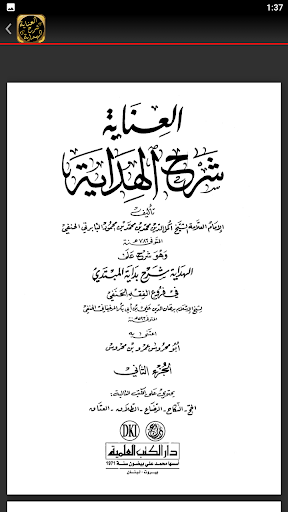 1:37
العناية
شرح الهداية
تأليف
الإمام العلامة الشيخ أكمل الدين محمد بن محمد بن محمود البابرتي الحنفي
المتوفى ٧٨٦ سنة
وهو شرح على
الهداية شرح بداية المبتدي
في فروع الفقه الحنفي
لشيخ الإسلام برهان الدين علي بن أبي بكر المرغيناني الحنفي
المتوفى ٥٩٣ سنة
اعتنى به
أبو محروس عمرو بن محروس
الجزء الثاني
يحتوي على الكتب التالية:
الحج - النكاح - الرضاع - الطلاق - العتاق
DKi
دار الكتب العلمية
أسسها محمد علي بيضون سنة 1971
بيروت - لبنان